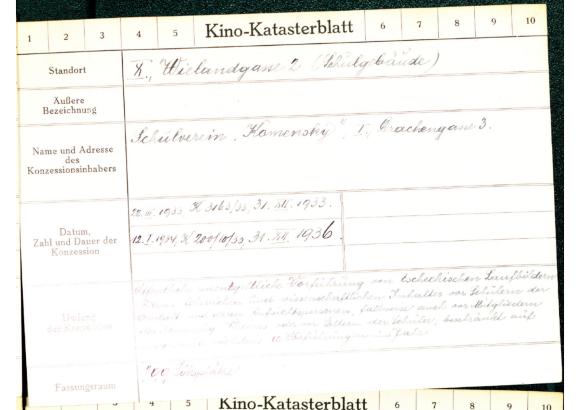 1 2 3 4 5 Kino-Katasterblatt 6 7 8 9 10
Standort
X., Wielandgasse 2 (Schulgebäude)
Äußere
Bezeichnung
Name und Adresse
des
Konzessionsinhabers
Schulverein „Komenský“, I., Drachengasse 3.
Datum,
Zahl und Dauer der
Konzession
20. III. 1933, 31. XII. 1933.
12. I. 1934, 31. XII. 1936.
Umfang
der Konzession
Öffentliche unentgeltliche Vorführung von tschechischen Laufbildern
und wissenschaftlichen Inhaltes vor Schülern der
und deren Aufsichtspersonen, auch vor Mitgliedern
oder vor Eltern der Schüler, beschränkt auf
10 Vorführungen im Jahr.
Fassungsraum
99 Sitzplätze
4 5 Kino-Katasterblatt 6 7 8 9 10